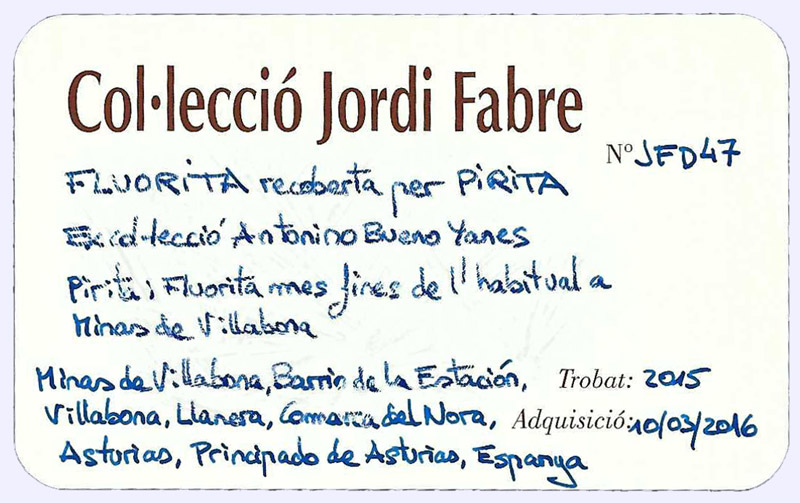 Col·lecció Jordi Fabre
Nº JFD47
FLUORITA recoberta per PIRITA
Ex col·lecció Antonino Bueno Yanes
Pirita i Fluorita mes fines de l'habitual a
Minas de Villabona
Minas de Villabona, Barrio de la Estación, Trobat: 2015
Villabona, Llanera, Comarca del Nora, Adquisició: 10/03/2016
Asturias, Principado de Asturias, Espanya